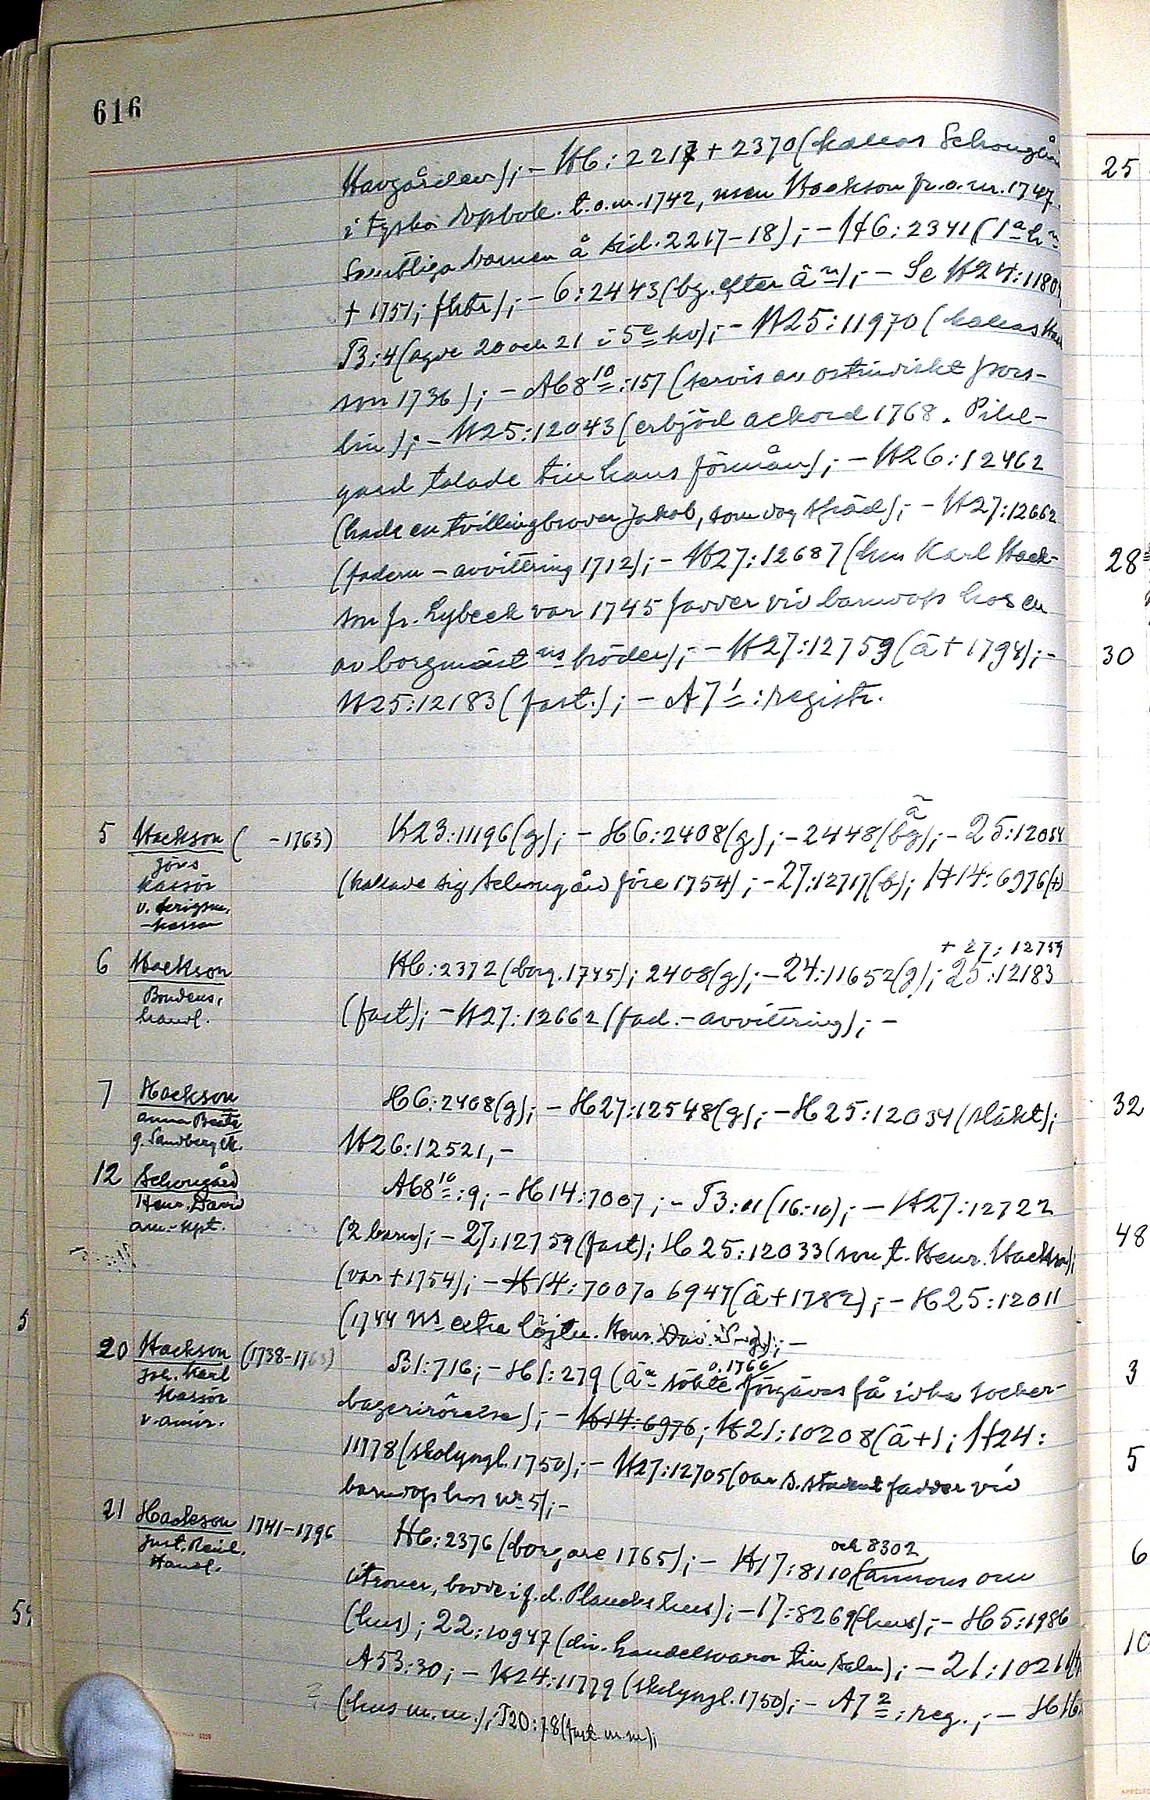 616
Havgården); – H6:2217 + 2370 (kallas Schougår
i Tyska dopbok. t.o.m. 1742, men Hackson fr.o.m. 1747.
Samtliga barnen å sid. 2217–18); – H6:2341 (1a h
+ 1751; ); – 6:2443 (bg. efter än); – Se H24:1180
B:4 (agde 20 och 21 i 5e kv); – H25:11970 (kallas Hac
son 1736); – A68 10:157 (servis av ostindiskt pors-
lin); – H25:12043 (erbjöd ackord 1768. Pihl-
gard talade till hans förmån); – H26:12462
(hade en tvillingbroder Jakob, som dog späd); – H27:12662
(fadern – avvittring 1712); – H27:12687 (hru Karl Hack-
son fr. Lybeck var 1745 fadder vid barndop hos en
av borgmäst ns bröder); – H27:12759 (ä + 1794); –
H25:12183 (fast.); – A7 1:registr.
5 Hackson ( –1763) K23:11196 (g); – H6:2408 (g); – 2448 (bg); – 25:12034
Jöns (kallade sig Schougård före 1754); – 27:12717 (b); H14:6976 (+)
kassör
v.
+ 27:12759
6 Hackson H6:2372 (borg. 1745); 2408 (g); – 24:11652 (g); 25:12183
Boudens, (fast); – H27:12662 (fad. – avvittring); –
handl.
7 Hackson H6:2408 (g); – H27:12548 (g); – H25:12034 (släkt);
Anna Beata H26:12521, –
g. Sandberg
12 Schougård A68 10:9; – H14:7007; – B: (16:10); – H27:12722
Henr. David (2 barn); – 27:12759 (fast); H25:12033 (son t. Henr. Hackson);
am.-kpt. (var + 1754); – H14:7007 o 6947 (ä + 1782); – H25:12011
(1744 extra löjtn. Henr. Dav. ); –
20 Hackson (1738–1765) B1:716; – H1:279 (än sökte o. 1766 förgäves få idka socker-
Joh. Karl bagerirörelse); – H14:6976; H21:10208 (ä +); H24:
kassör 11778 (skolyngl. 1750); – H27:12705 (var s. student fadder vid
v. amir. barndop hos nr 5); –
21 Hackson 1741–1796 H6:2376 (borgare 1765); – H17:8110 och 8302 (annons om
Just. Reinh. citroner, bodde i f.d. Planckska hus); – 17:8269 (hus); – H5:1986
Handl. (hus); 22:10947 (div. handelsvaror till salu); – 21:1021
A53:30; – K24:11779 (skolyngl. 1750); – A7 2:reg.; – H16
(hus m.m.); T20:78 (fast m.m);
25
28
30
32
48
3
5
6
10
5
54